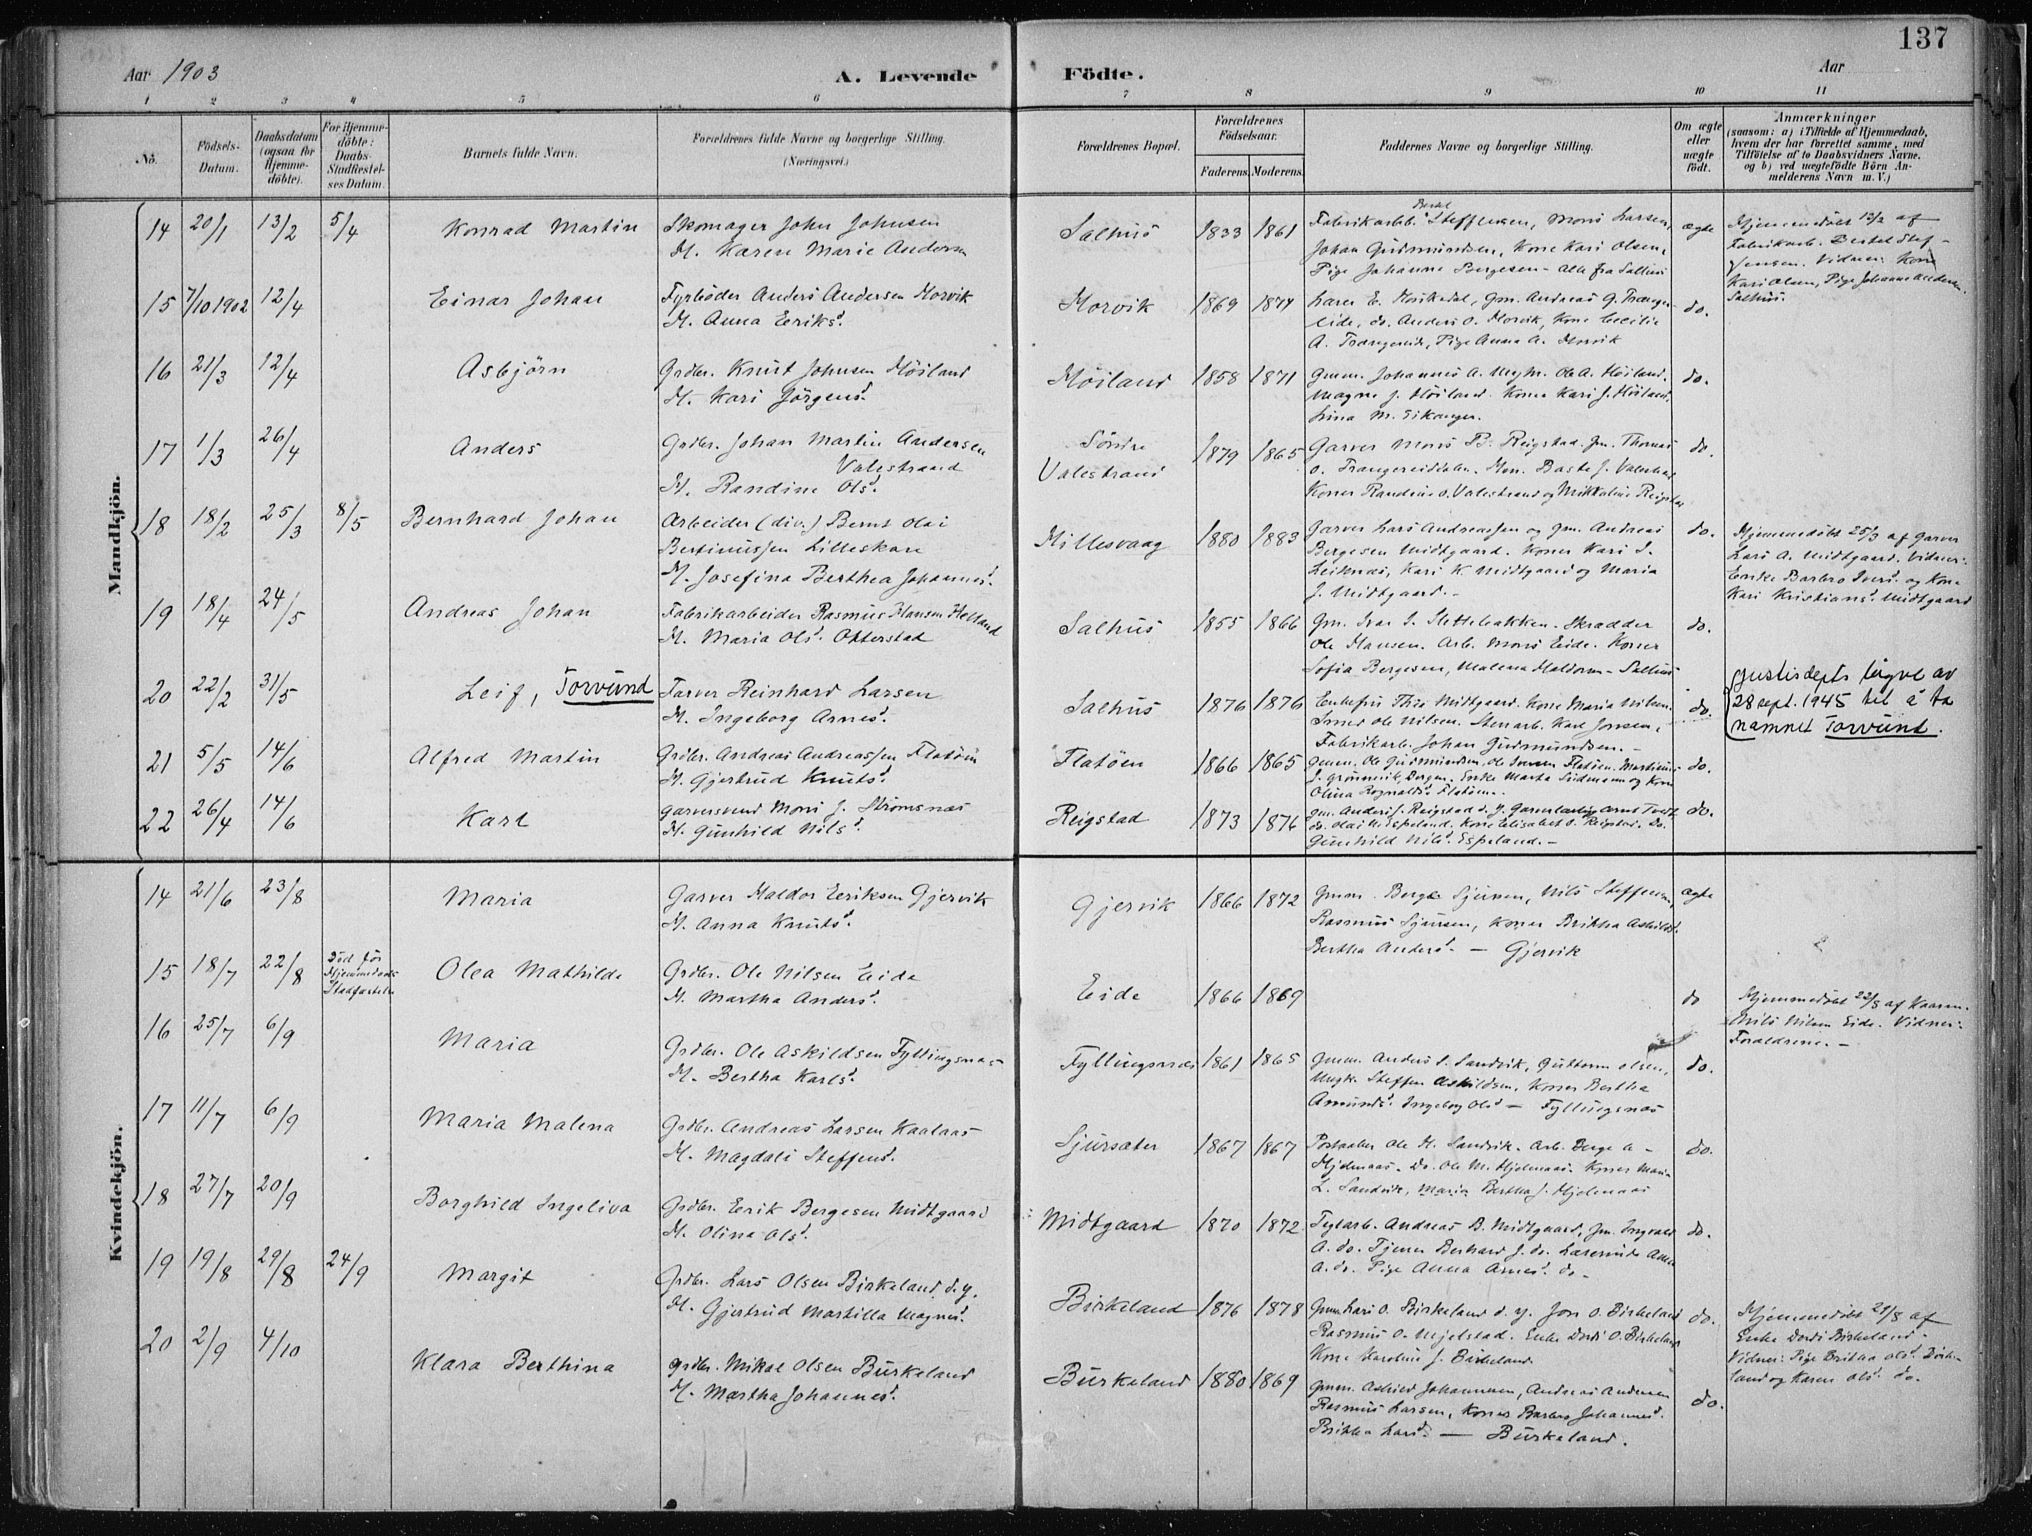 137
Aar 1903
A. Levende
Födte.
Aar
1 2 3 4 5 6 7 8 9 10 11
No.
Födsels-
Datum.
Daabsdatum
(ogsaa for
Hjemme-
döbte).
For Hjemme-
döbte:
Daabs-
Stadfæstel-
ses Datum.
Barnets fulde Navn.
Forældrenes fulde Navne og borgerlige Stilling.
(Næringsvei.)
Forældrenes Bopæl.
Forældrenes
Födselsaar.
Faderens. Moderens.
Faddernes Navne og borgerlige Stilling.
Om ægte
eller
uægte
födt.
Anmærkninger
(saasom: a) i Tilfælde af Hjemmedaab,
hvem der har forrettet samme, med
Tilföielse af to Daabsvidners Navne,
og b) ved uægtefödte Börn An-
melderens Navn m. V.)
Mandkjön.
14 20/1 13/2 5/4 Konrad Martin
Skomager John Johnsen
H. Karen Marie Andersen
Salhus 1833 1861
Fabrikarb. Bertel Steffensen, Mons Larsen,
Johan Gudmundsen, Kone Kari Olsen,
Pige Johanne Bergesen - alle fra Salhus
ægte
Hjemmedöbt 13/2 af
Fabrikarb. Bertel Stef-
fensen. Vidner: Kone
Kari Olsen, Pige Johanne Andersen
Salhus.
15 7/10 1902 12/4 Einar Johan
Fyrböder Anders Andersen Horvik
H. Anna Eeriks.d
Horvik 1869 1874
do.
A. Trængereide, Pige Anna A. Horvik
16 21/3 12/4 Asbjörn
Grdbr. Knut Johnsen Höiland
H. Kari Jörgens.d
Höiland 1858 1871
Gmm. Johannes A. Ungk. Ole A. Höiland.
Magne J. Höiland. Kone Kari J. Höiland,
M. Eikanger.
do.
17 1/3 26/4 Anders
Grdbr. Johan Martin Andersen
Valestrand
H. Randine Ols.d
Söndre
Valestrand 1879 1865
Garver Mons B. Reigstad. Gm. Thomas
Koner Randine O. Valestrand og Mikkaline Reigstad
do.
18 18/2 25/3 8/5 Bernhard Johan
Arbeider (div.) Bernt Olai
Bertinussen Lilleskare
H. Josefina Berthea Johannes.d
Hillesvaag 1880 1883
Garver Lars Andreassen og Gm. Andreas
Bergesen Midtgaard. Koner Kari I.
Leiknes, Kari K. Midtgaard og Maria
J. Midtgaard. -
do.
Hjemmedöbt 25/3 af Garver
Lars A. Midtgaard. Vidner:
Enke Barbro Ivers.d og Kone
Kari Kristians.d Midtgaard
19 18/4 24/5 Andreas Johan
Fabrikarbeider Rasmus Hansen Helland
H. Maria Ols.d Otterstad
Salhus 1855 1866
Gm. Ivar I. Slettebakken. Skrædder
Ole Hansen. Arb. Mons Eide. Koner
Sofia Bergesen, Malena Haldorsen - Salhus
do.
20 22/2 31/5 Leif, Torvund
Farver Reinhard Larsen
H. Ingeborg Arnes.d
Salhus 1876 1876
Enkefru Thea Midtgaard. Kone Maria Nilsen.
Ole Nilsen. Stenarb. Karl Jonsen,
Fabrikarb. Johan Gudmundsen. -
do.
Justisdepts løyve av
28 sept. 1945 til å ta
namnet Torvund.
21 5/5 14/6 Alfred Martin
Grdbr. Andreas Andreassen Flatöen
H. Gjertrud Knuts.d
Flatöen 1866 1865
Enke Marta Sudmann og Kone
Olina Rognalds.d Flatöen. -
do.
22 26/4 14/6 Karl
Garversvend Mons J. Strömsnæs
H. Gunhild Nils.d
Reigstad 1873 1876
Gunhild Nils.d Espeland. -
do.
Kvindekjön.
14 21/6 23/8 Maria
Garver Haldor Eeriksen Gjervik
H. Anna Knuts.d
Gjervik 1866 1872
Gmm. Berge Sjursen, Nils Steffensen,
Rasmus Sjursen, Koner Brithe Askilds.d
Bertha Anders.d - Gjervik
ægte
15 18/7 22/8 Död för
Hjemmedaabs
Stadfæstelse
Olea Mathilde
Grdbr. Ole Nilsen Eide
H. Martha Anders.d
Eide 1866 1869
do
Hjemmedöbt 22/8 af Kaarm.
Nils Nilsen Eide. Vidner:
Forældrene. -
16 25/7 6/9 Maria
Grdbr. Ole Askildsen Fyllingsnæs
H. Bertha Karls.d
Fyllingsnæs 1861 1865
Gmm. Anders I. Sandvik, Guttorm Olsen,
Ungk. Steffen Askildsen, Koner Bertha
Amunds.d Ingeborg Ols.d - Fyllingsnæs
do.
17 11/7 6/9 Maria Malena
Grdbr. Andreas Larsen Kaalaas
H. Magdali Steffens.d
Sjursæter 1867 1867
Postaabn. Ole H. Sandvik. Arb. Berge A.
Hjelmaas. Do. Ole M. Hjelmaas. Koner Mari
L. Sandvik, Maria Bertha J. Hjelmaas
do.
18 27/7 20/9 Borghild Ingeliva
Grdbr. Eerik Bergesen Midtgaard
H. Olina Ols.d
Midtgaard 1870 1872
Teglarb. Andreas B. Midtgaard, Gm. Ingvald
A. do. Tjener Bernhard J. do.
A. do. Pige Anna Arnes.d do.
do.
19 19/8 29/8 24/9 Margit
Grdbr. Lars Olsen Birkeland d. y.
H. Gjertrud Martilla Magnes.d
Birkeland 1876 1878
Gmm. Lars O. Birkeland d. y. Jon O. Birkeland
Rasmus O. Mjelstad. Enke Dordi O. Birkeland
Kone Karoline J. Birkeland
do.
Hjemmedöbt 29/8 af
Enke Dordi Birkeland.
Vidner: Pige Britha Ols.d Birke-
land og Karen Ols.d do.
20 2/9 4/10 Klara Berthina
Grdbr. Mikal Olsen Burkeland
H. Martha Johannes.d
Burkeland 1880 1869
Gmm. Askild Johannesen, Andreas Andersen
Rasmus Larsen, Koner Barbro Johannes.d
Britha Lars.d - Burkeland.
do.